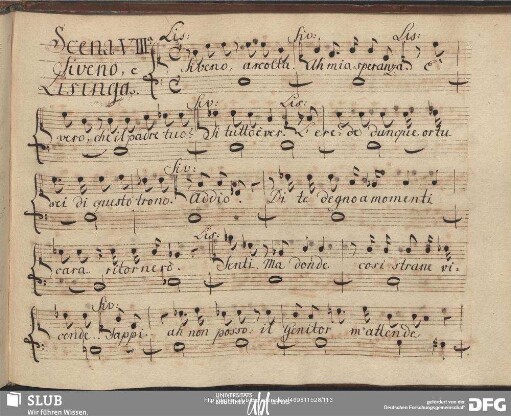 Scena VIIIa
Siveno, e
Lisinga.
Lis: Siv: Lis:
Siveno, ascolta. Ah mia speranza. E'
Siv: Lis:
vero, che il padre tuo? Sì tutto è ver. L'ere-de dunque or tu
Siv:
sei di questo trono. Addio. Di te degno a momenti
Lis:
cara ritornerò. Senti, Ma donde così strane vi-
Siv:
cende.. Sappi.. ah non posso. il genitor m'attende
SLUB
Wir führen Wissen.
gefördert von der
DFG
Deutschen Forschungsgemeinschaft